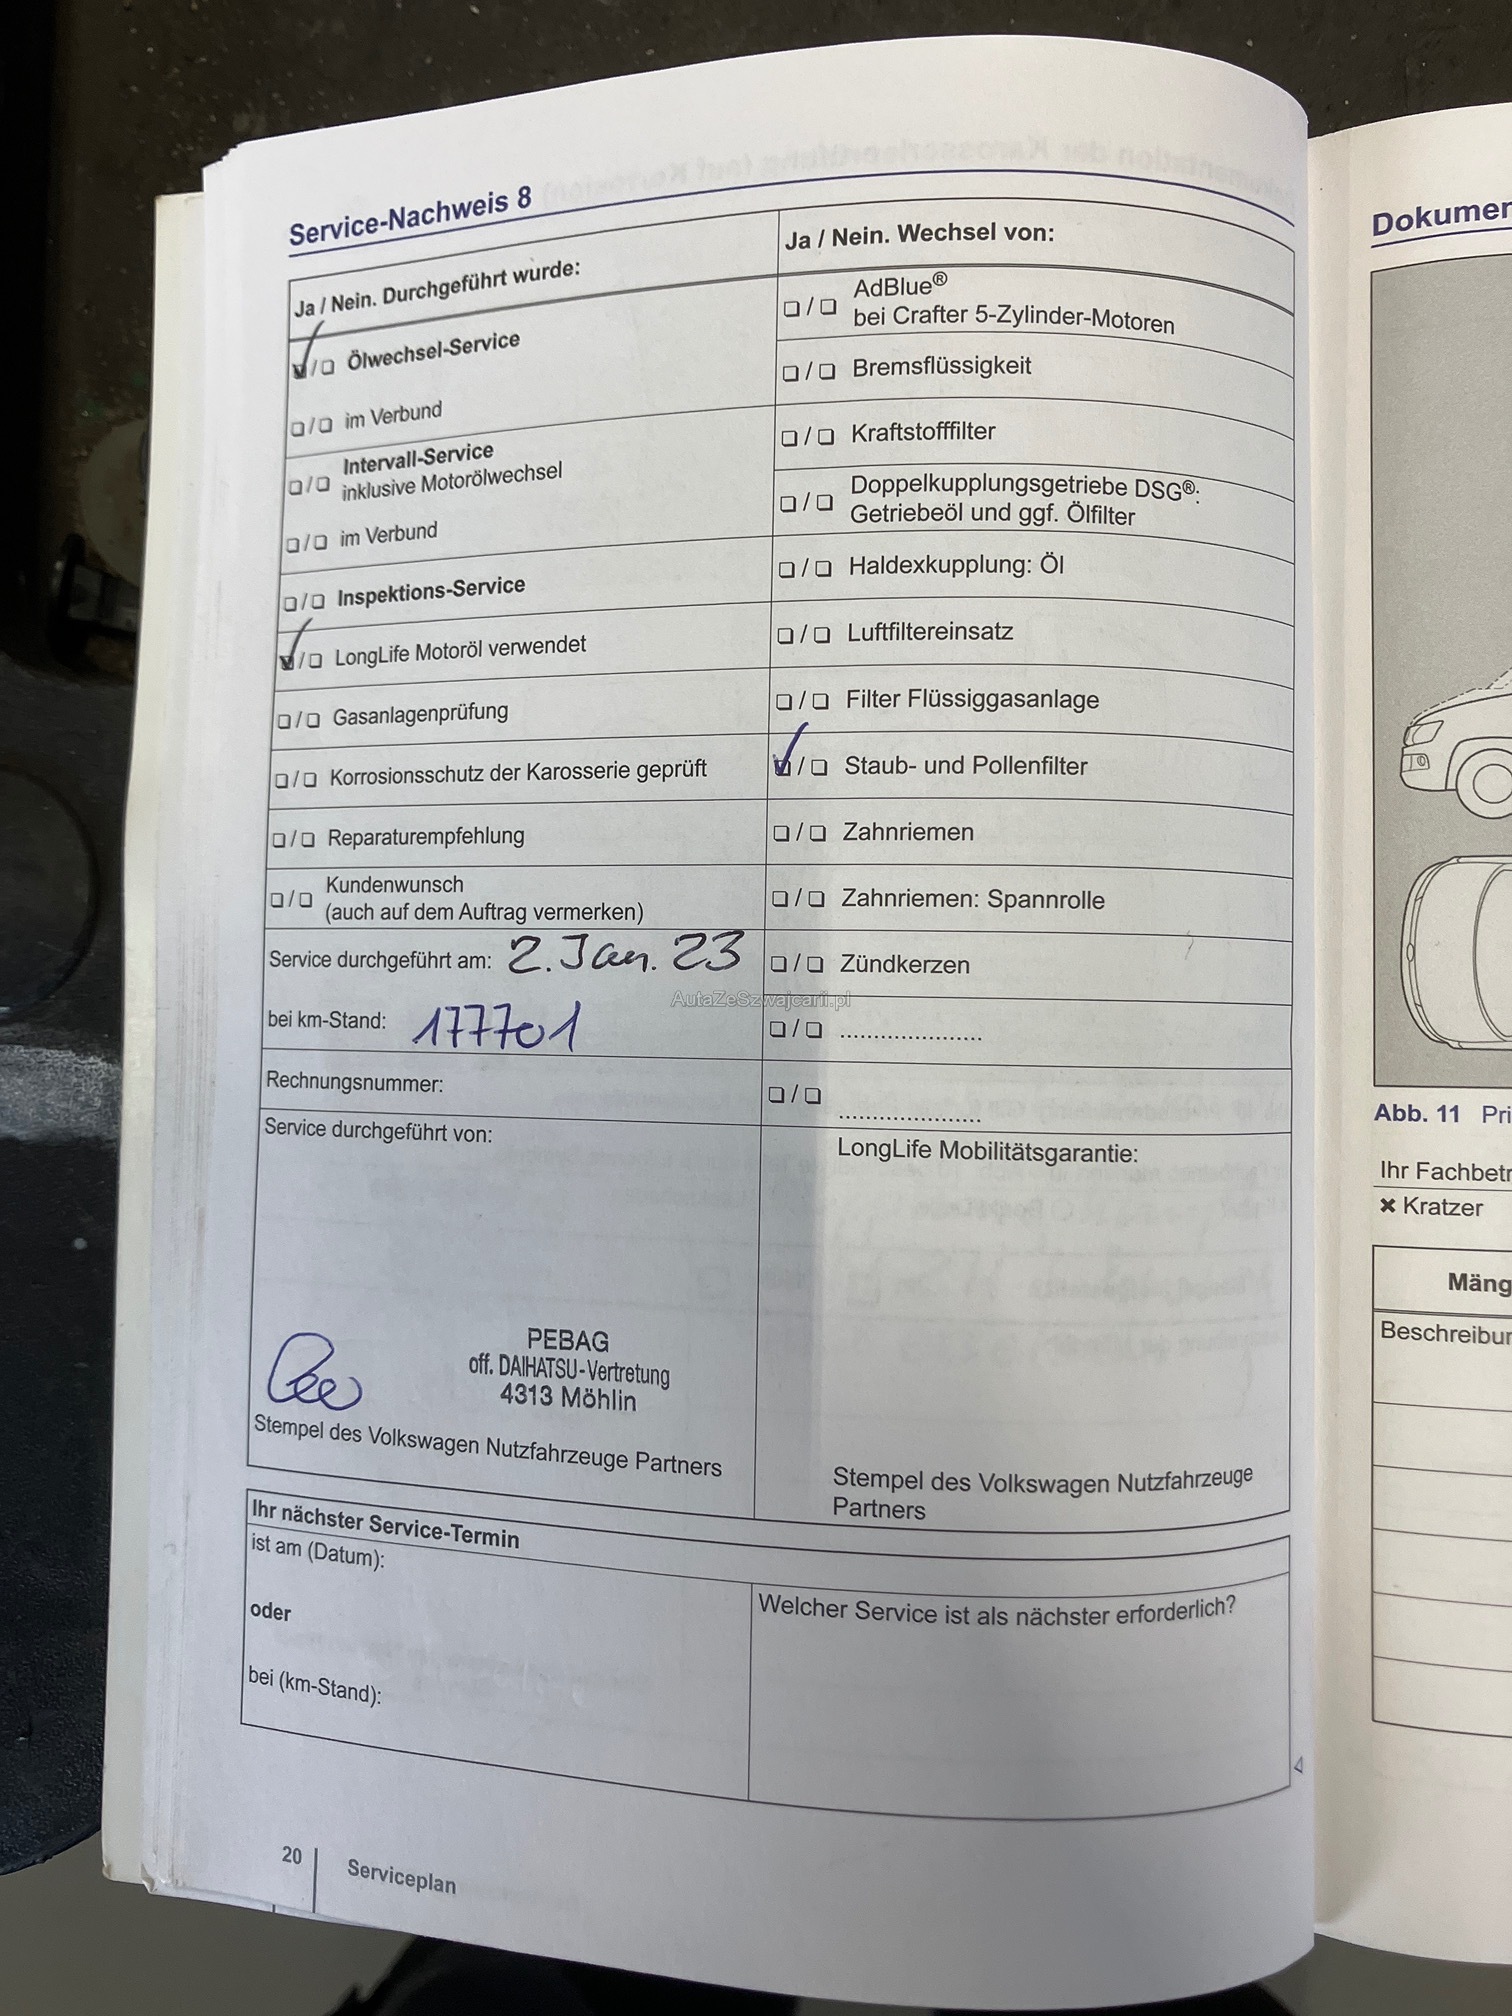 Service-Nachweis 8
Ja / Nein. Durchgeführt wurde:
Ölwechsel-Service
im Verbund
Intervall-Service
inklusive Motorölwechsel
im Verbund
Inspektions-Service
LongLife Motoröl verwendet
Gasanlagenprüfung
Korrosionsschutz der Karosserie geprüft
Reparaturempfehlung
Kundenwunsch
(auch auf dem Auftrag vermerken)
Service durchgeführt am: 2. Jan. 23
bei km-Stand: 177701
Rechnungsnummer:
Service durchgeführt von:
PEBAG
off. DAIHATSU-Vertretung
4313 Möhlin
Stempel des Volkswagen Nutzfahrzeuge Partners
Ja / Nein. Wechsel von:
AdBlue®
bei Crafter 5-Zylinder-Motoren
Bremsflüssigkeit
Kraftstofffilter
Doppelkupplungsgetriebe DSG®:
Getriebeöl und ggf. Ölfilter
Haldexkupplung: Öl
Luftfiltereinsatz
Filter Flüssiggasanlage
Staub- und Pollenfilter
Zahnriemen
Zahnriemen: Spannrolle
Zündkerzen
AutaZeSzwajcarii.pl
LongLife Mobilitätsgarantie:
Stempel des Volkswagen Nutzfahrzeuge
Partners
Ihr nächster Service-Termin
ist am (Datum):
oder
bei (km-Stand):
Welcher Service ist als nächster erforderlich?
20 Serviceplan
Dokumen
Abb. 11 Pri
Ihr Fachbetr
✖ Kratzer
Mäng
Beschreibur